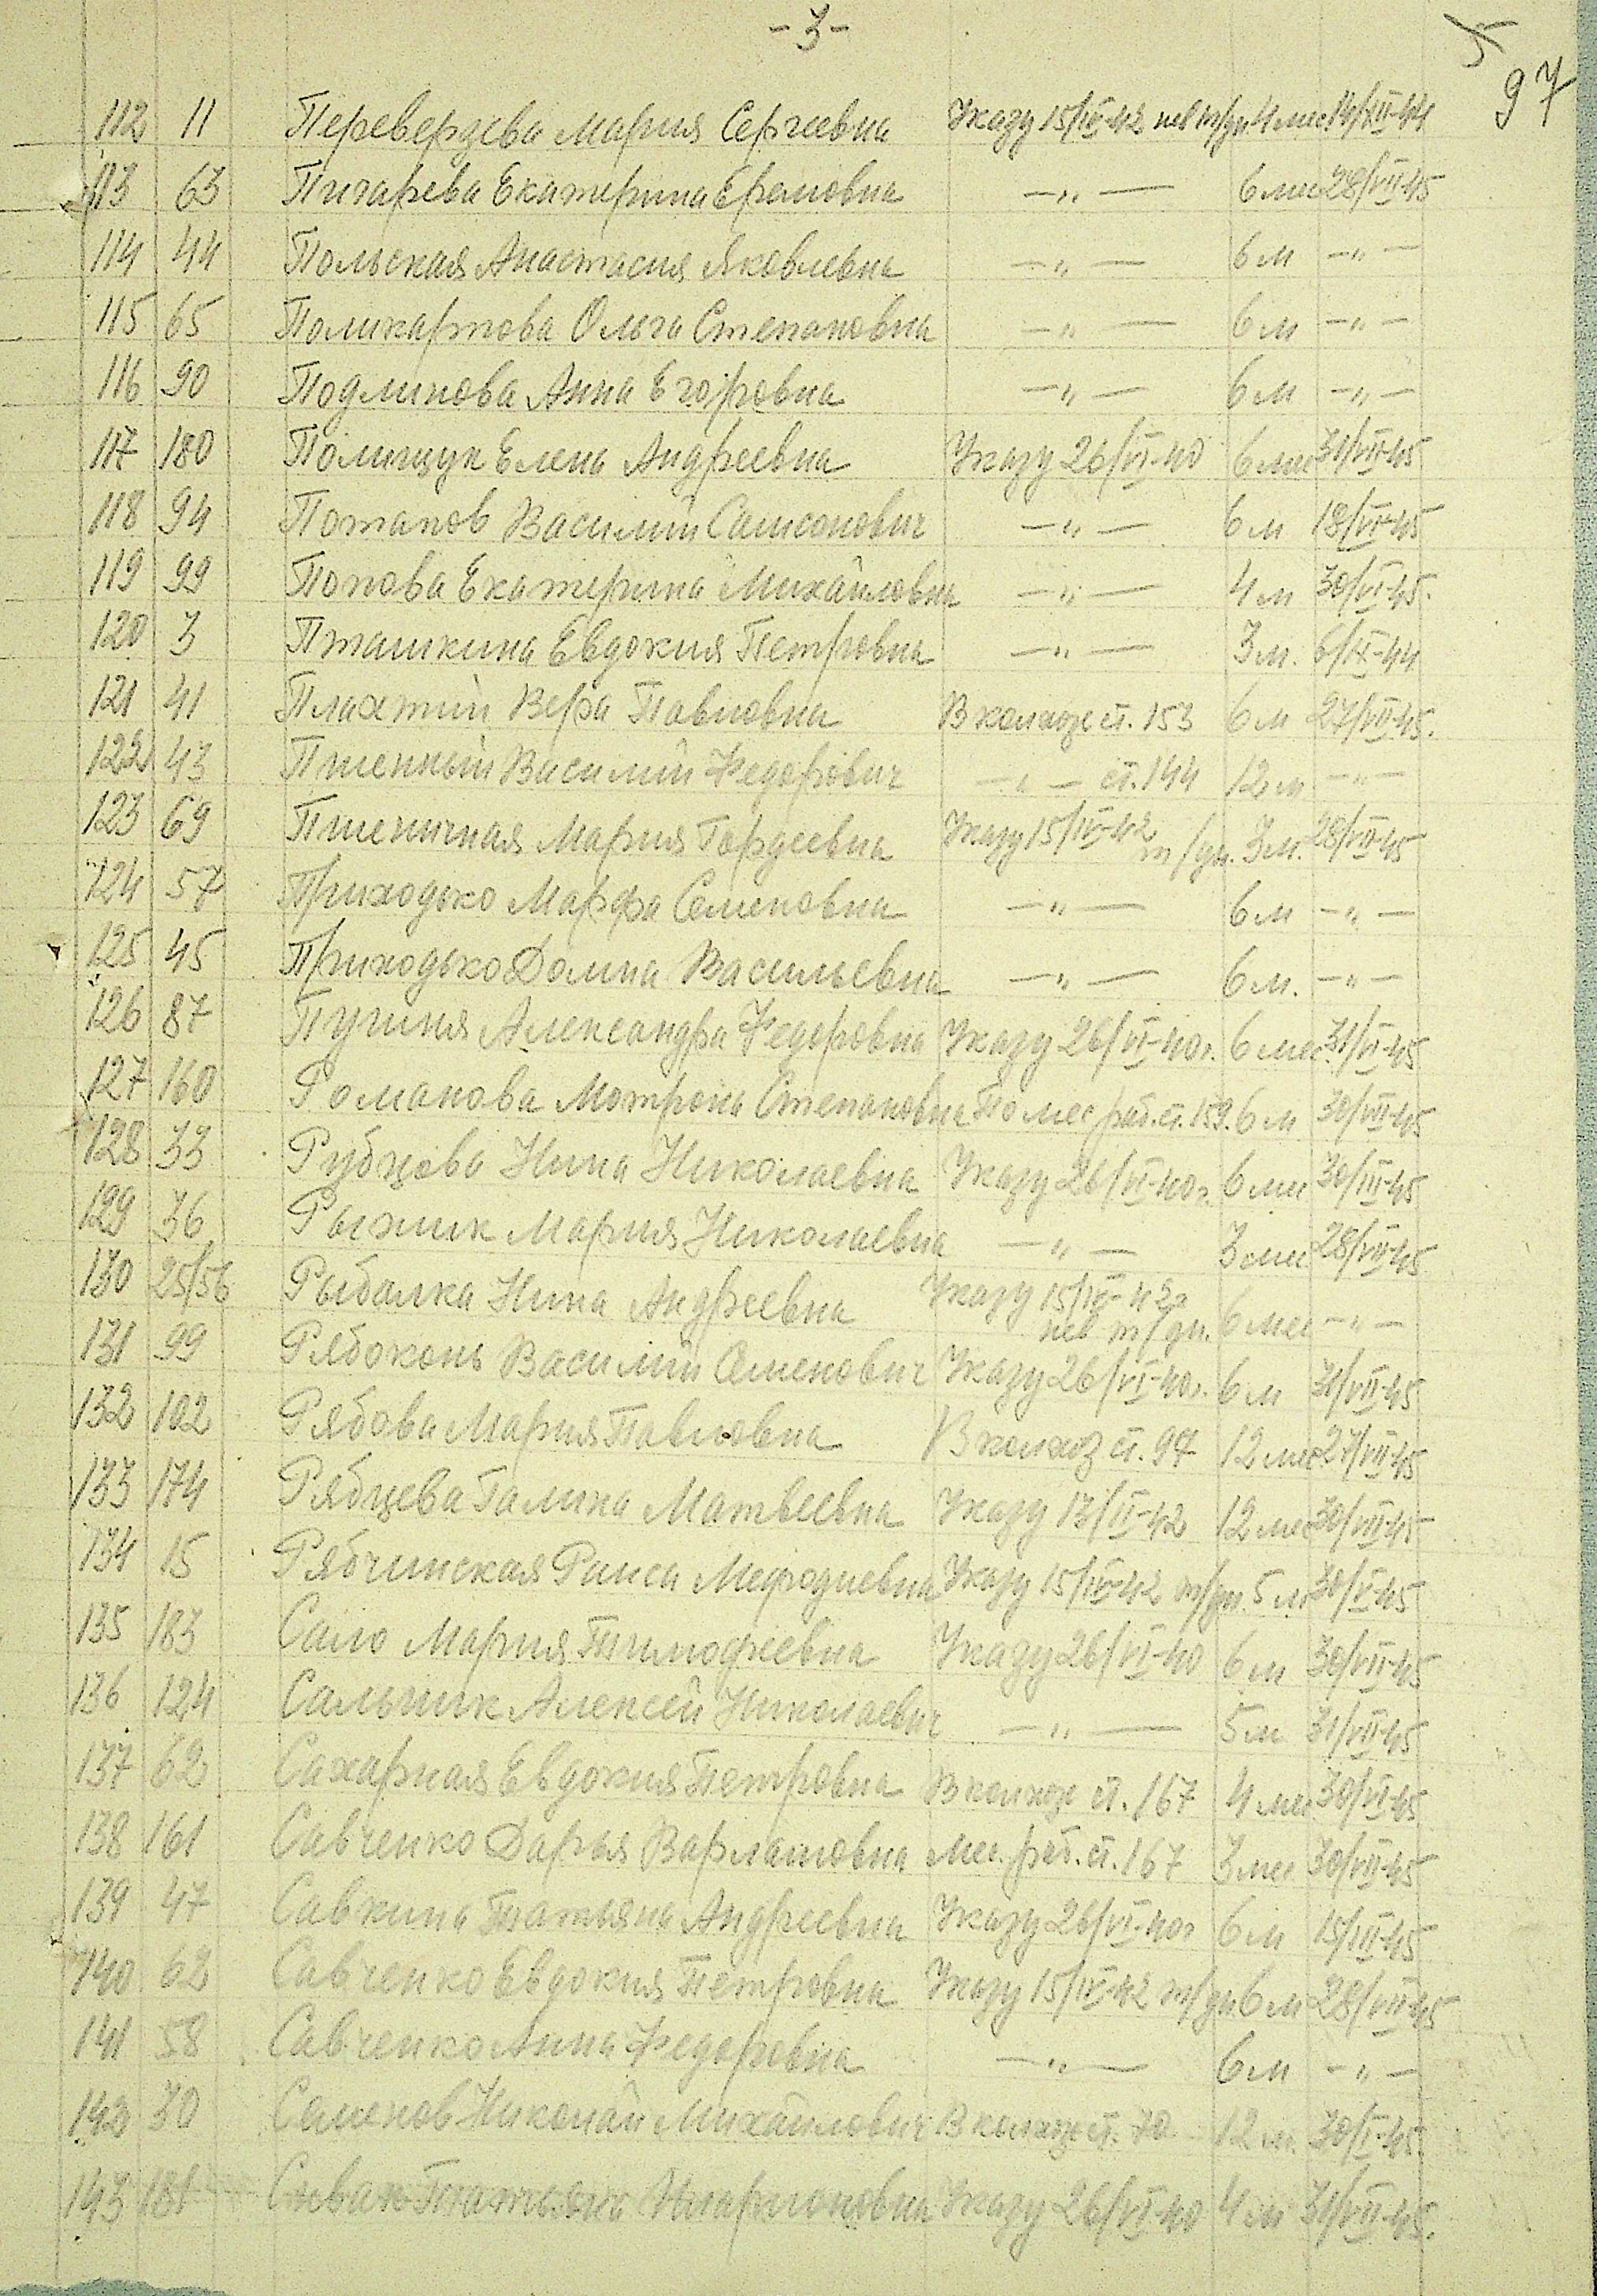 -3-
5
97
112 11 Переверзева Мария Сергеевна Указу 15/IV-42 нев т/дн 4 мес 14/XII-44
113 63 Пигарева Екатерина Ефремовна —"— 6 мес 28/VII-45
114 44 Польская Анастасия Яковлевна —"— 6 м —"—
115 65 Поликарпова Ольга Степановна —"— 6 м —"—
116 90 Подлинова Анна Егоровна —"— 6 м —"—
117 180 Полищук Елена Андреевна Указу 26/VI-40 6 мес 31/VII-45
118 94 Потапов Василий Самсонович —"— 6 м 18/VI-45
119 99 Попова Екатерина Михайловна —"— 4 м 30/VI-45.
120 3 Пташкина Евдокия Петровна —"— 3 м. 6/IX-44
121 41 Плахтий Вера Павловна В колхозе ст. 153 6 м 27/VII-45.
122 43 Пшенный Василий Федорович —"— ст. 144 12 м —"—
123 69 Пшеничная Мария Гордеевна Указу 15/IV-42 т/дн. 3 м. 28/VII-45
124 57 Приходько Марфа Семеновна —"— 6 м —"—
125 45 Приходько Домна Васильевна —"— 6 м. —"—
126 87 Пугиня Александра Федоровна Указу 26/VI-40г. 6 мес 31/VI-45
127 160 Романова Мотрона Степановна По мес раб. ст. 159. 6 м 30/VII-45
128 33 Рубцова Нина Николаевна Указу 26/VI-40г. 6 мес 30/III-45
129 36 Рыхлик Мария Николаевна —"— 3 мес 28/VII-45
130 25/56 Рыбалка Нина Андреевна Указу 15/IV-42г нев т/дн. 6 мес —"—
131 99 Рябоконь Василий Семенович Указу 26/VI-40г. 6 м 31/VII-45
132 102 Рябова Мария Павловна В колхоз ст. 97 12 мес 27/VII-45
133 174 Рябцева Галина Матвеевна Указу 13/II-42 12 мес 30/VII-45
134 15 Рябчинская Раиса Мефодиевна Указу 15/IV-42 т/дн 5 м 30/V-45
135 183 Сало Мария Тимофеевна Указу 26/VI-40 6 м 30/VII-45
136 124 Сальник Алексей Николаевич —"— 5 м 31/VII-45
137 62 Сахарная Евдокия Петровна В колхозе ст. 167 4 мес 30/VI-45
138 161 Савченко Дарья Варламовна Мес. раб. ст. 167 3 мес 30/VII-45
139 47 Савкина Татьяна Андреевна Указу 26/VI-40г 6 м 15/III-45
140 62 Савченко Евдокия Петровна Указу 15/IV-42 т/дн 6 м 28/VII-45
141 58 Савченко Анна Федоровна —"— 6 м —"—
142 30 Семенов Николай Михайлович В колхозе ст. 70 12 м. 30/I-45.
143 181 Татьяна Иларионовна Указу 26/VI-40 4 м 31/VII-45.